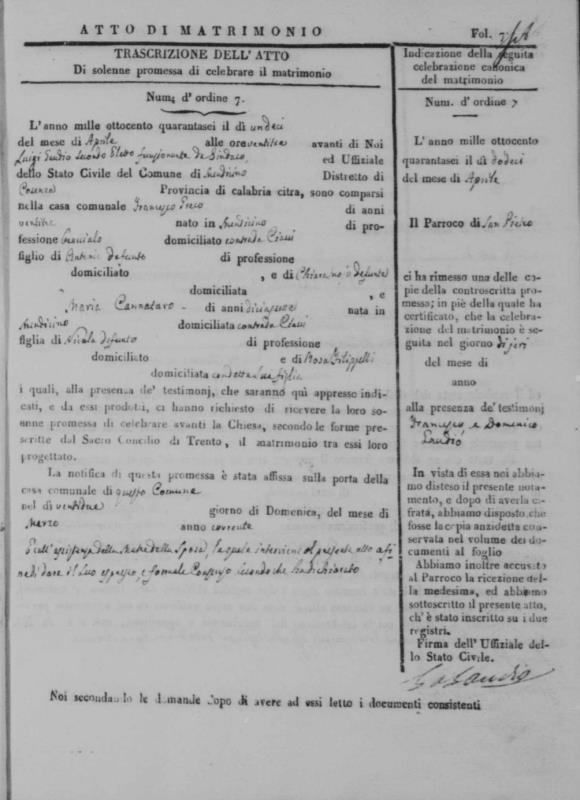 ATTO DI MATRIMONIO
Fol.
TRASCRIZIONE DELL'ATTO
Di solenne promessa di celebrare il matrimonio
Num. d'ordine 7.
L'anno mille ottocento quarantasei il dì undeci
del mese di Aprile alle ore ventitre avanti di Noi
Luigi secondo Eletto funzionante da Sindaco, ed Uffiziale
dello Stato Civile del Comune di Distretto di
Cosenza Provincia di calabria citra, sono comparsi
nella casa comunale Francesco di anni
ventitre nato in di pro-
fessione bracciale domiciliato contrada
figlio di defunto di professione
domiciliato , e di defunta
domiciliata , e
Maria Cannataro di anni diciannove nata in
domiciliata contrada
figlia di Nicola defunto di professione
domiciliato e di Rosa Filippelli
domiciliata con detta sua figlia
i quali, alla presenza de' testimonj, che saranno quì appresso indi-
cati, e da essi prodotti, ci hanno richiesto di ricevere la loro so-
enne promessa di celebrare avanti la Chiesa, secondo le forme pre-
scritte dal Sacro Concilio di Trento, il matrimonio tra essi loro
progettato.
La notifica di questa promessa è stata affissa sulla porta della
casa comunale di questo Comune
nel dì ventidue giorno di Domenica, del mese di
Marzo anno corrente
coll'assistenza della Madre della Sposa, la quale interviene al presente atto a fi
ne di dare il suo espresso, e formale Consenso secondo che ha dichiarato
Noi secondando le domande dopo di avere ad essi letto i documenti consistenti
Indicazione della seguita
celebrazione canonica
del matrimonio
Num. d'ordine 7
L'anno mille ottocento
quarantasei il dì dodeci
del mese di Aprile
Il Parroco di San Pietro
ci ha rimesso una delle co-
pie della controscritta pro-
messa; in piè della quale ha
certificato, che la celebra-
zione del matrimonio è se-
guita nel giorno di jeri
del mese di
anno
alla presenza de' testimonj
Francesco e Domenico
In vista di essa noi abbia-
mo disteso il presente nota-
mento, e dopo di averla ci-
frata, abbiamo disposto che
fosse la copia anzidetta con-
servata nel volume dei do-
cumenti al foglio
Abbiamo inoltre accusato
al Parroco la ricezione del-
la medesima, ed abbiamo
sottoscritto il presente atto,
ch'è stato inscritto su i due
registri.
Firma dell'Uffiziale del-
lo Stato Civile.